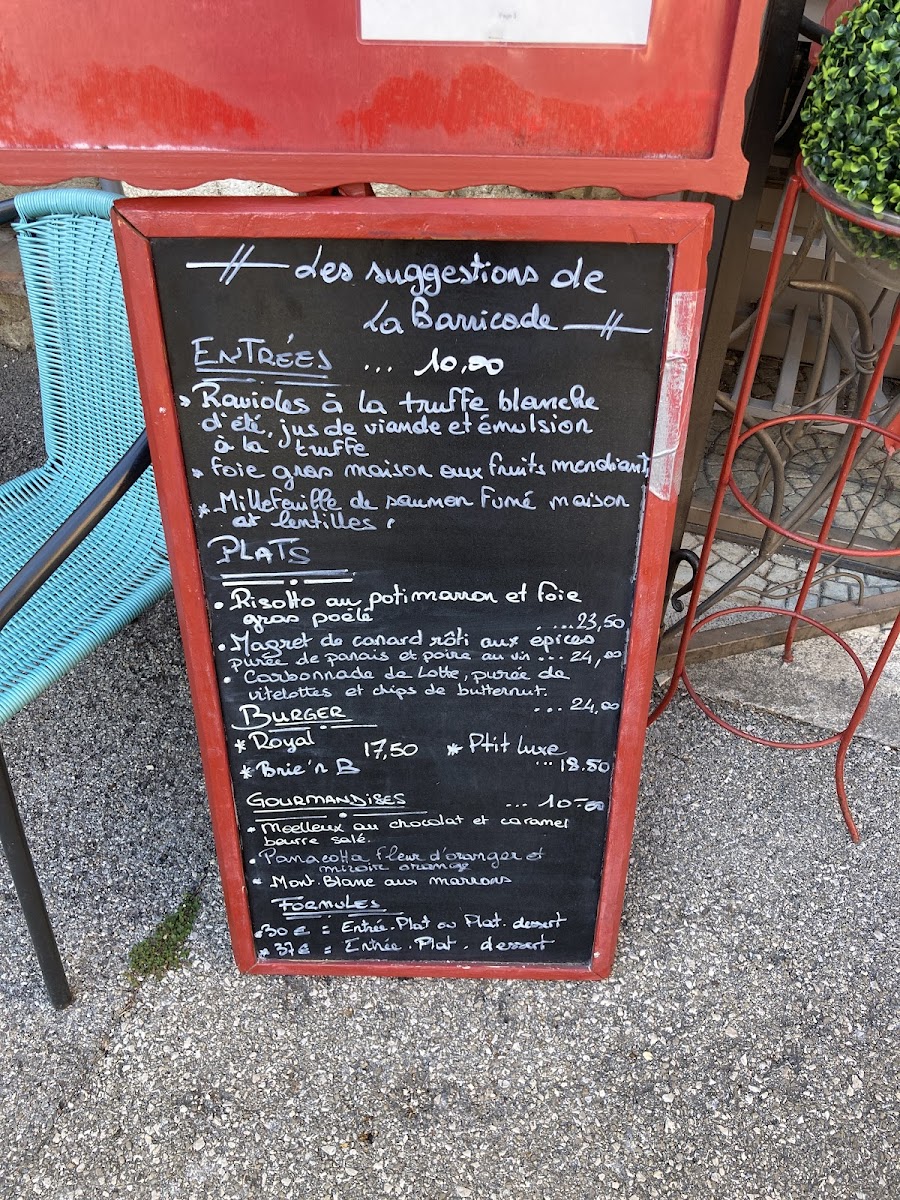 Les suggestions de
La Barricade
ENTRÉES ... 10,00
Ravioles à la truffe blanche
d'été, jus de viande et émulsion
à la truffe
* foie gras maison aux fruits mendiant
* Millefeuille de saumon fumé maison
et lentilles
PLATS
• Risotto au potimarron et foie
gras poêlé ....23,50
• Magret de canard rôti aux épices
purée de panais et poire au vin ... 24,00
• Carbonnade de Lotte, purée de
vitelottes et chips de butternut.
... 24,00
BURGER
* Royal 17,50 * Ptit luxe
* Brie'n B ... 18.50
GOURMANDISES ... 10.00
• Moelleux au chocolat et caramel
beurre salé.
• Panacotta fleur d'oranger et
miroir orange
• Mont-Blanc aux marrons
FORMULES
• 30 € = Entrée.Plat ou Plat.dessert
* 37 € = Entrée.Plat.dessert